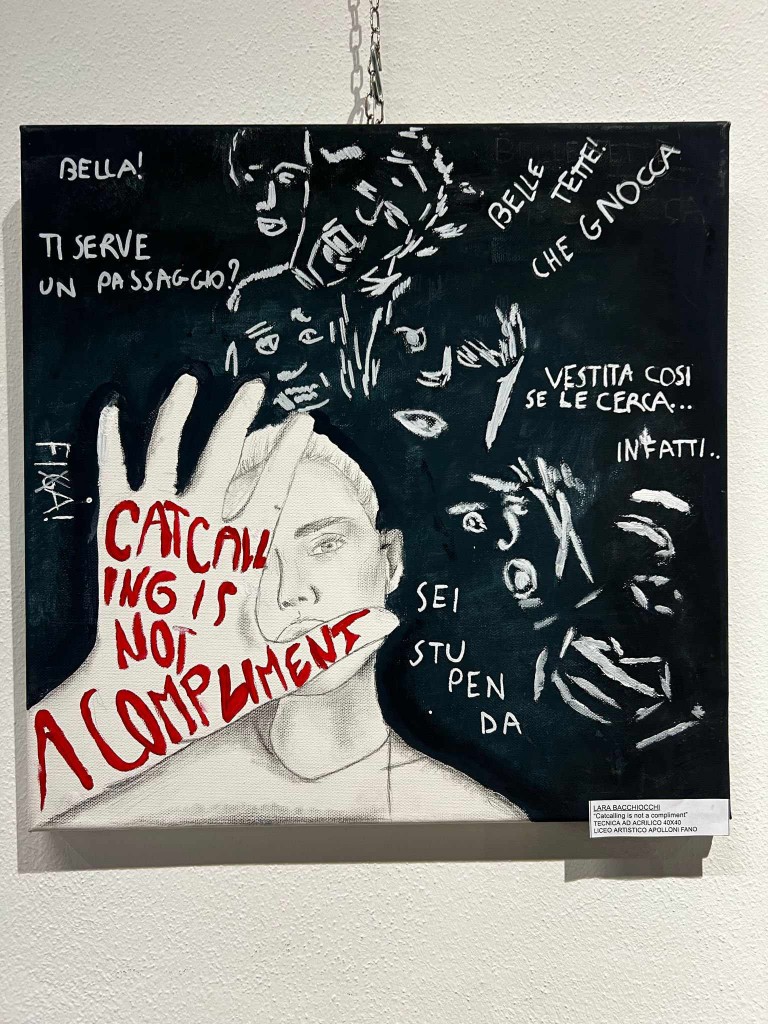 BELLA!
TI SERVE
UN PASSAGGIO?
BELLE TETTE!
CHE GNOCCA
VESTITA COSI
SE LE CERCA...
INFATTI..
CATCALL
ING IS
NOT
A COMPLIMENT
SEI
STU
PEN
DA
LARA BACCHIOCCHI
"Catcalling is not a compliment"
TECNICA AD ACRILICO 40X40
LICEO ARTISTICO APOLLONI FANO